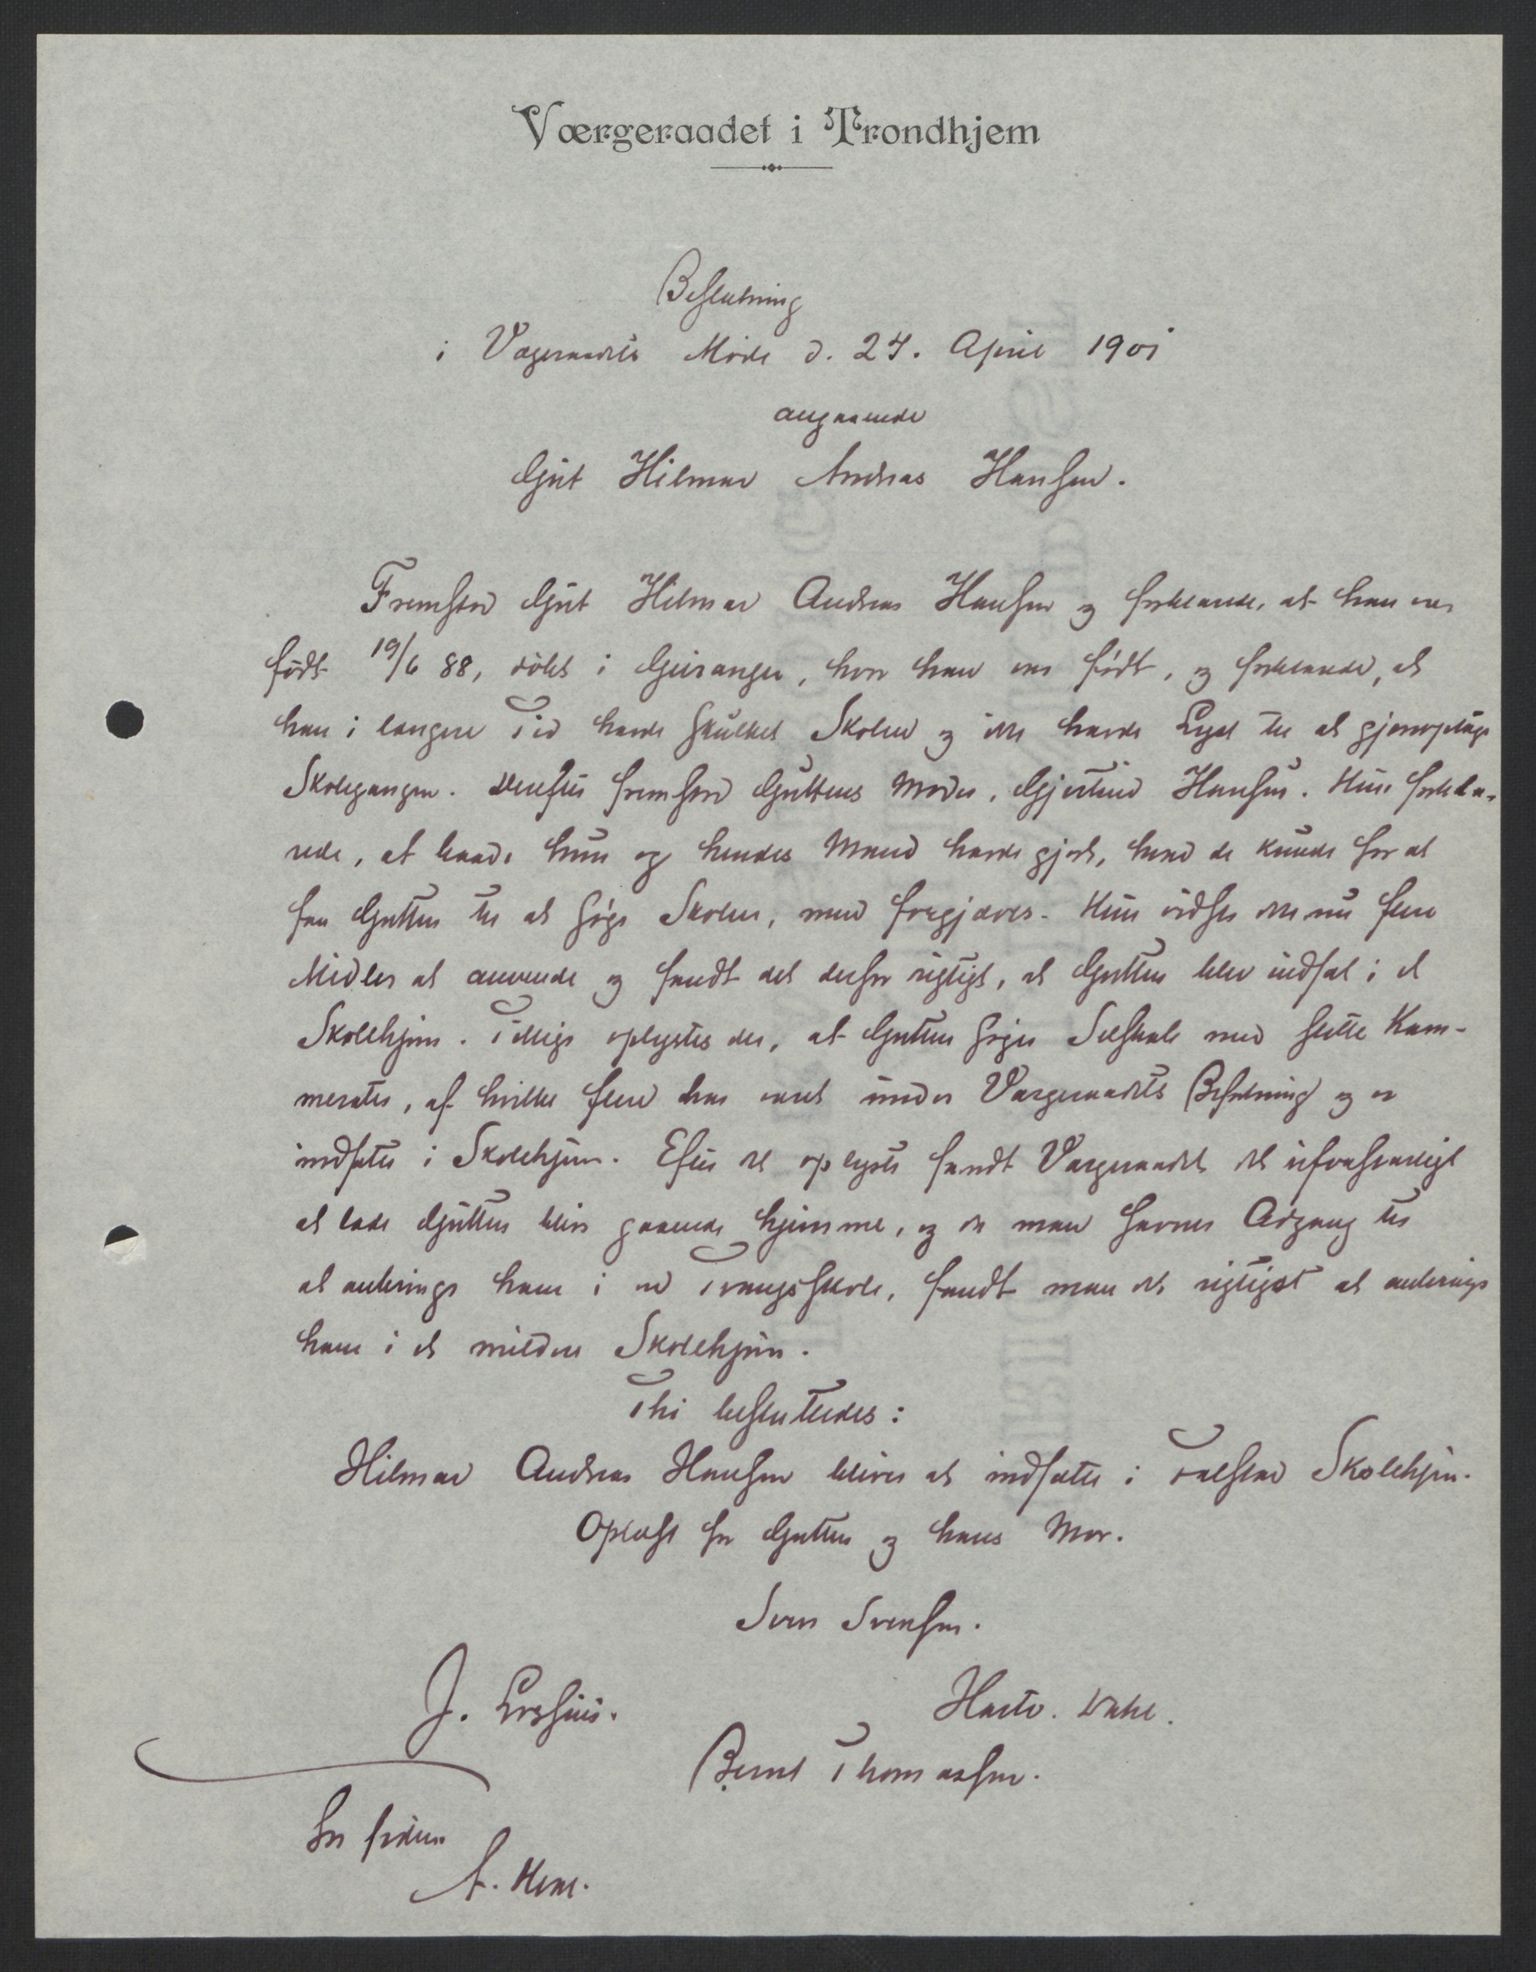 Værgeraadet i Trondhjem
Beslutning
i Værgeraadets Møde d. 24. April 1901
angaaende
Gut Hilmar Andreas Hansen.
Fremstod Gut Hilmar Andreas Hansen og forklarede, at han var
født 19/6 88, døbt i Geiranger, hvor han var født, og forklarede, at
han i længere Tid havde skulket Skolen og ikke havde Lyst til at gjenoptage
Skolegangen. Derefter fremstod Guttens Moder, Gjertine Hansen. Hun forkla-
rede, at baade hun og hendes Mand havde gjort, hvad de kunde for at
faa Gutten til at søge Skolen, men forgjæves. Hun vidste ikke nu flere
Midler at anvende og fandt det derfor rigtigt, at Gutten blev indsat i et
Skolehjem. Tillige oplystes der, at Gutten søger Selskab med slette Kam-
merater, af hvilke flere har været under Værgeraadets Behandling og er
indsatte i Skolehjem. Efter det oplyste fandt Værgeraadet det uforsvarligt
at lade Gutten blive gaaende hjemme, og da man savner Adgang til
at anbringe ham i en Tvangsskole, fandt man det rigtigst at anbringe
ham i et mildere Skolehjem.
Thi besluttedes:
Hilmar Andreas Hansen bliver at indsætte i Falstad Skolehjem.
Oplæst for Gutten og hans Mor.
Sven Svensen.
J. Hartv. Dahl.
Bernt Thomassen.
A.